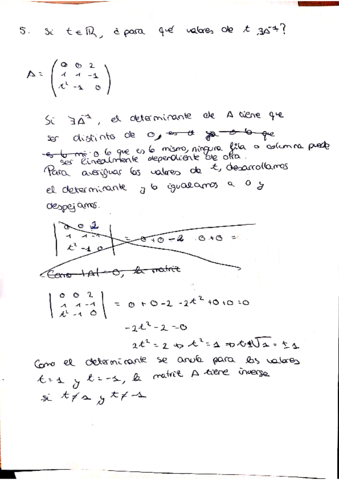 5. Si t ∈ ℝ, ¿para qué valores de t, ∃A⁻¹?
A = ( 0 0 2
1 1 -1
t² -1 0 )
Si ∃A⁻¹, el determinante de A tiene que
ser distinto de 0, o lo que
es lo mismo, ninguna fila o columna puede
ser linealmente dependiente de otra.
Para averiguar los valores de t, desarrollamos
el determinante y lo igualamos a 0 y
despejamos.
| 0 0 2
1 1 -1
t² -1 0 | = 0+0-2 0+0 =
Como |A| = 0, la matriz
| 0 0 2
1 1 -1
t² -1 0 | = 0+0-2-2t²+0+0=0
-2t²-2=0
2t²=2 ⇒ t²=1 ⇒ t=√1=±1
Como el determinante se anula para los valores
t=1 y t=-1, la matriz A tiene inversa
si t≠1 y t≠-1